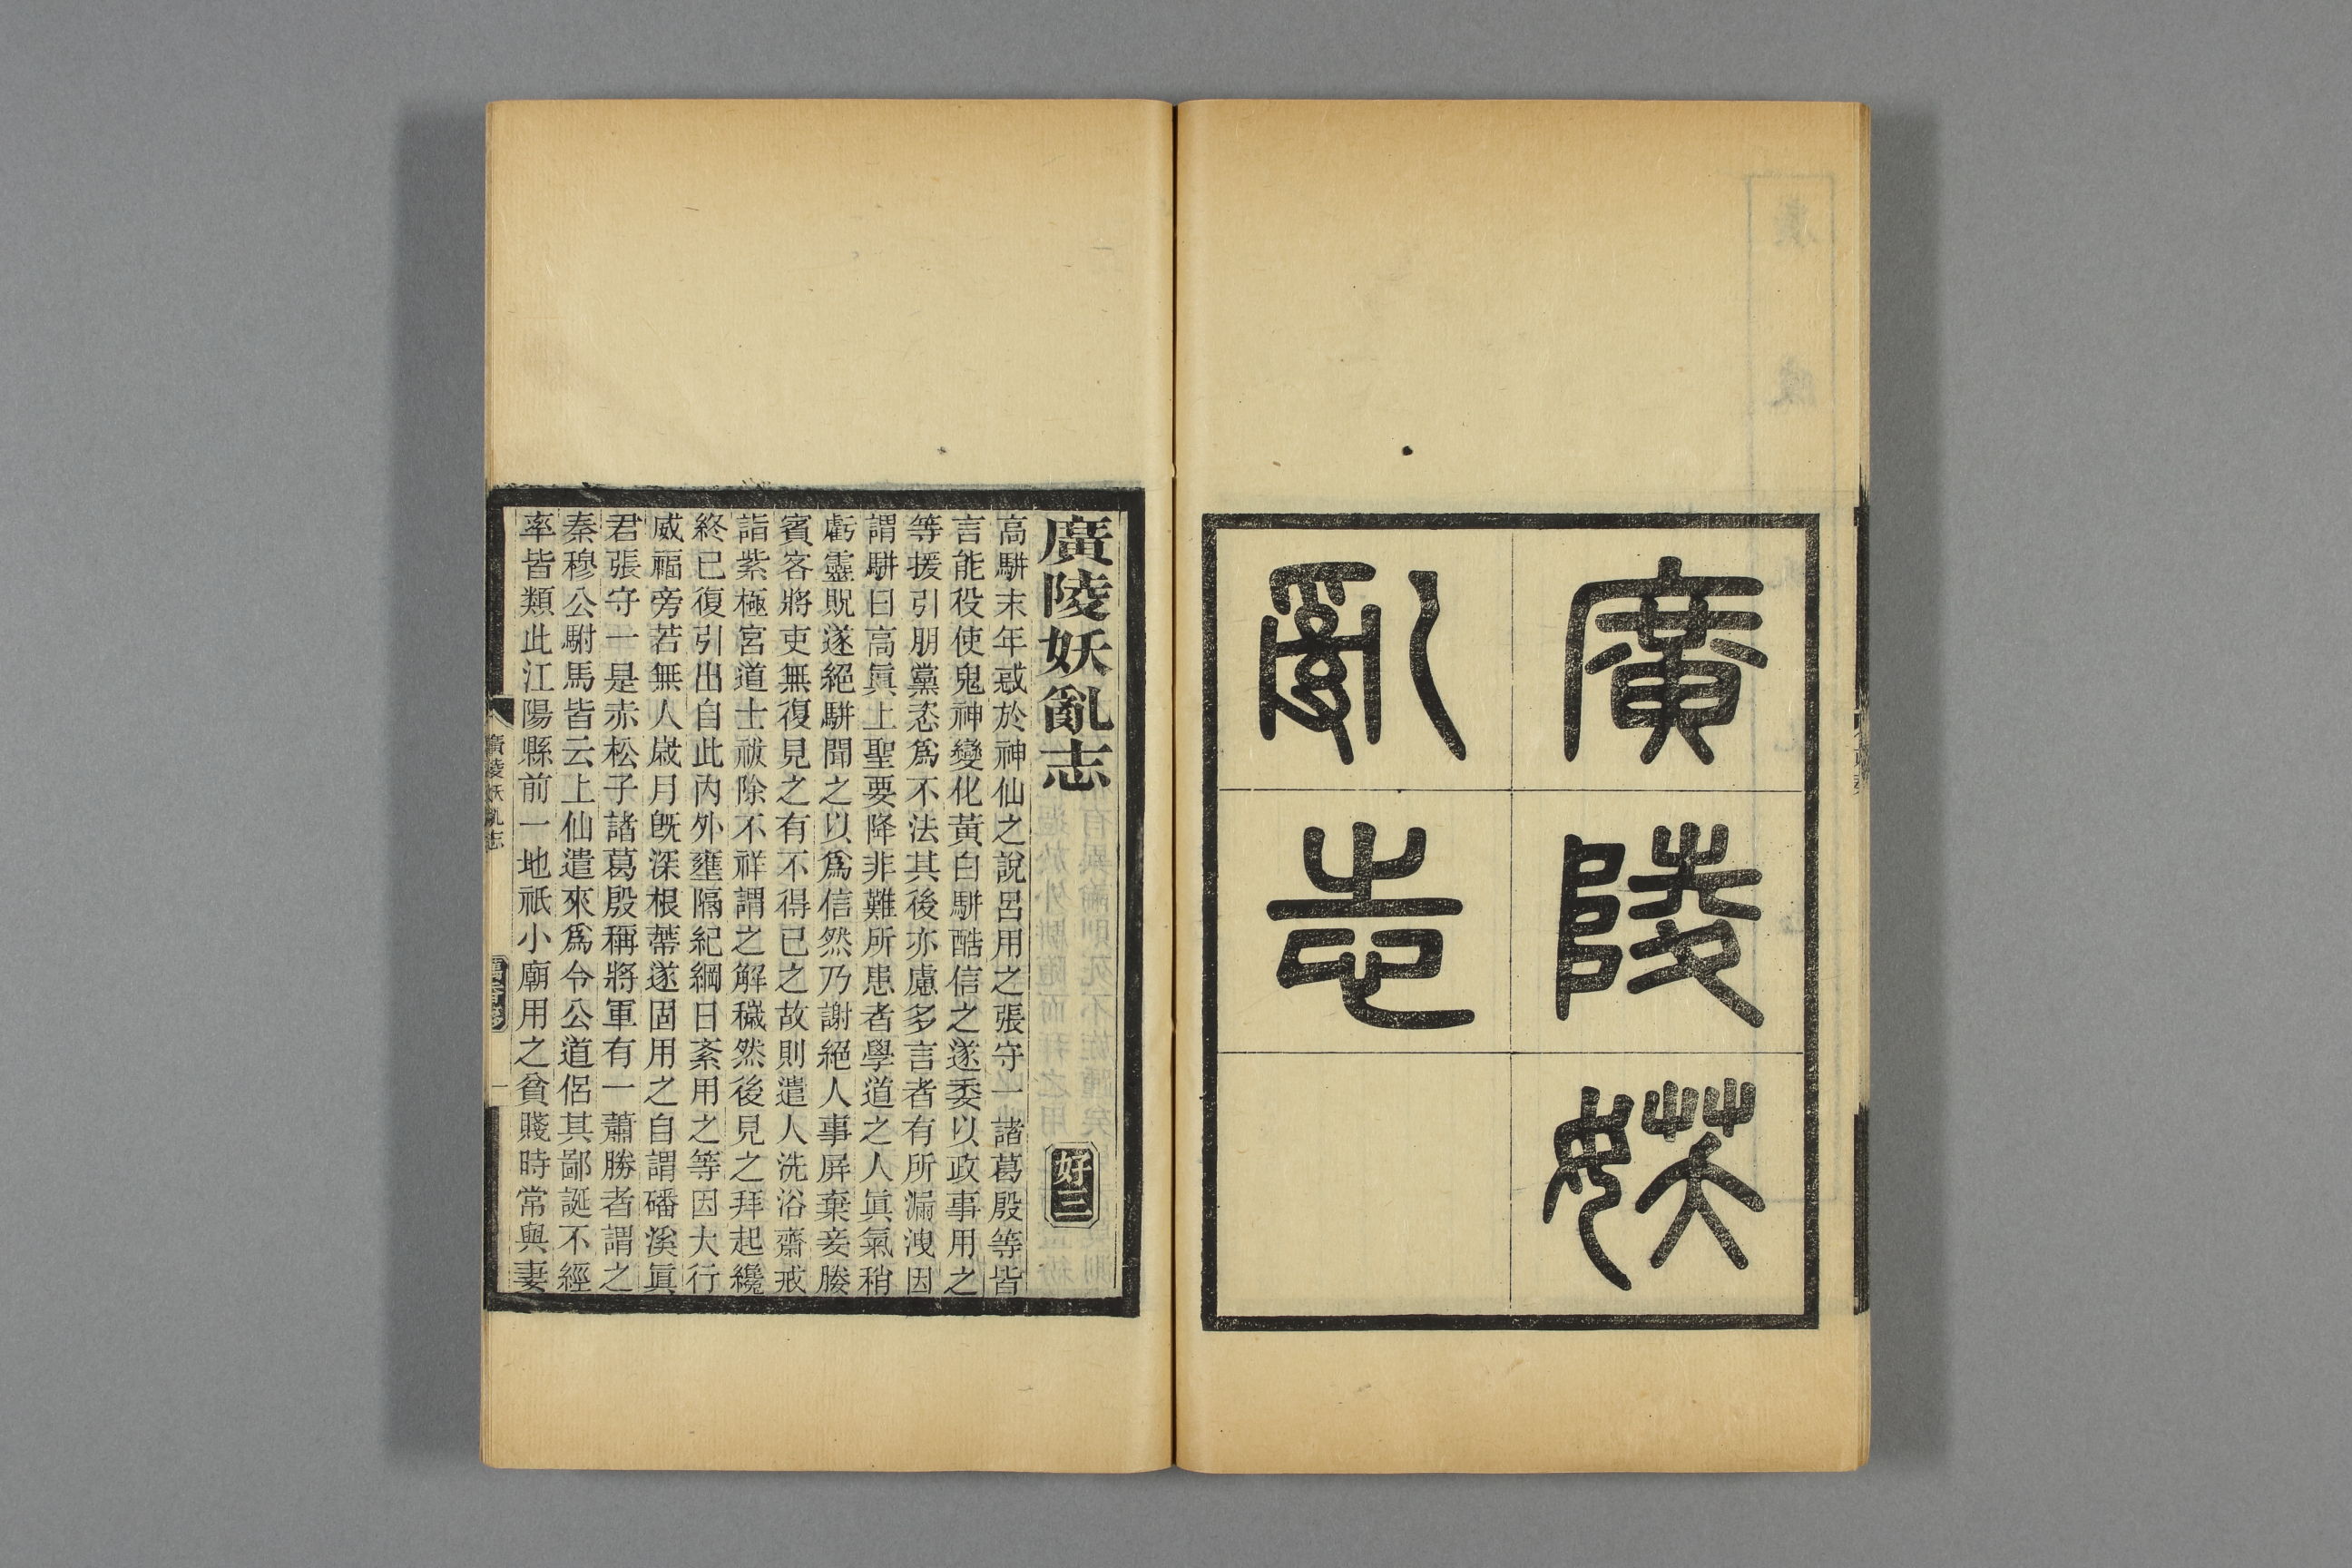 廣陵妖
亂志
廣陵妖亂志
好三
高駢末年惑於神仙之說呂用之張守一諸葛殷等皆
言能役使鬼神變化黃白駢酷信之遂委以政事用之
等援引朋黨恣爲不法其後亦慮多言者有所漏洩因
謂駢曰高眞上聖要降非難所患者學道之人眞氣稍
虧靈貺遂絕駢聞之以爲信然乃謝絕人事屏棄妾媵
賓客將吏無復見之有不得已之故則遣人洗浴齋戒
詣紫極宮道士祓除不祥謂之解穢然後見之拜起纔
終已復引出自此內外壅隔紀綱日紊用之等因大行
威福旁若無人歲月旣深根蔕遂固用之自謂磻溪眞
君張守一是赤松子諸葛殷稱將軍有一蕭勝者謂之
秦穆公駙馬皆云上仙遣來爲令公道侶其鄙誕不經
率皆類此江陽縣前一地祇小廟用之貧賤時常與妻
廣陵妖亂志
一